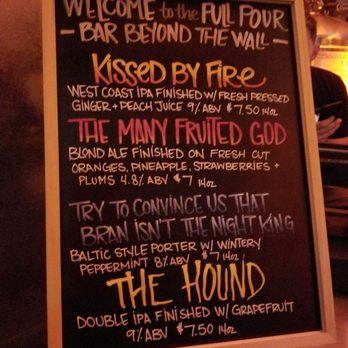 WELCOME to the FULL POUR
- BAR BEYOND THE WALL -
KISSED BY FIRE
WEST COAST IPA FINISHED W/ FRESH PRESSED
GINGER + PEACH JUICE 9% ABV $7.50 14oz
THE MANY FRUITED GOD
BLOND ALE FINISHED ON FRESH CUT
ORANGES, PINEAPPLE, STRAWBERRIES +
PLUMS 4.8% ABV $7 14oz
TRY TO CONVINCE US THAT
BRAN ISN'T THE NIGHT KING
BALTIC STYLE PORTER W/ WINTERY
PEPPERMINT 8% ABV $7 14oz
THE HOUND
DOUBLE IPA FINISHED W/ GRAPEFRUIT
9% ABV $7.50 14oz